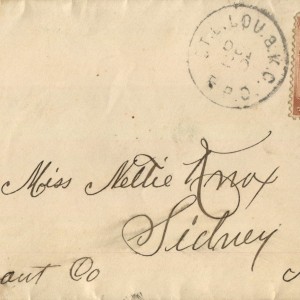 ST. L. LOU. & K.C.
R.P.O.
Miss Nettie Knox
Sidney
Co